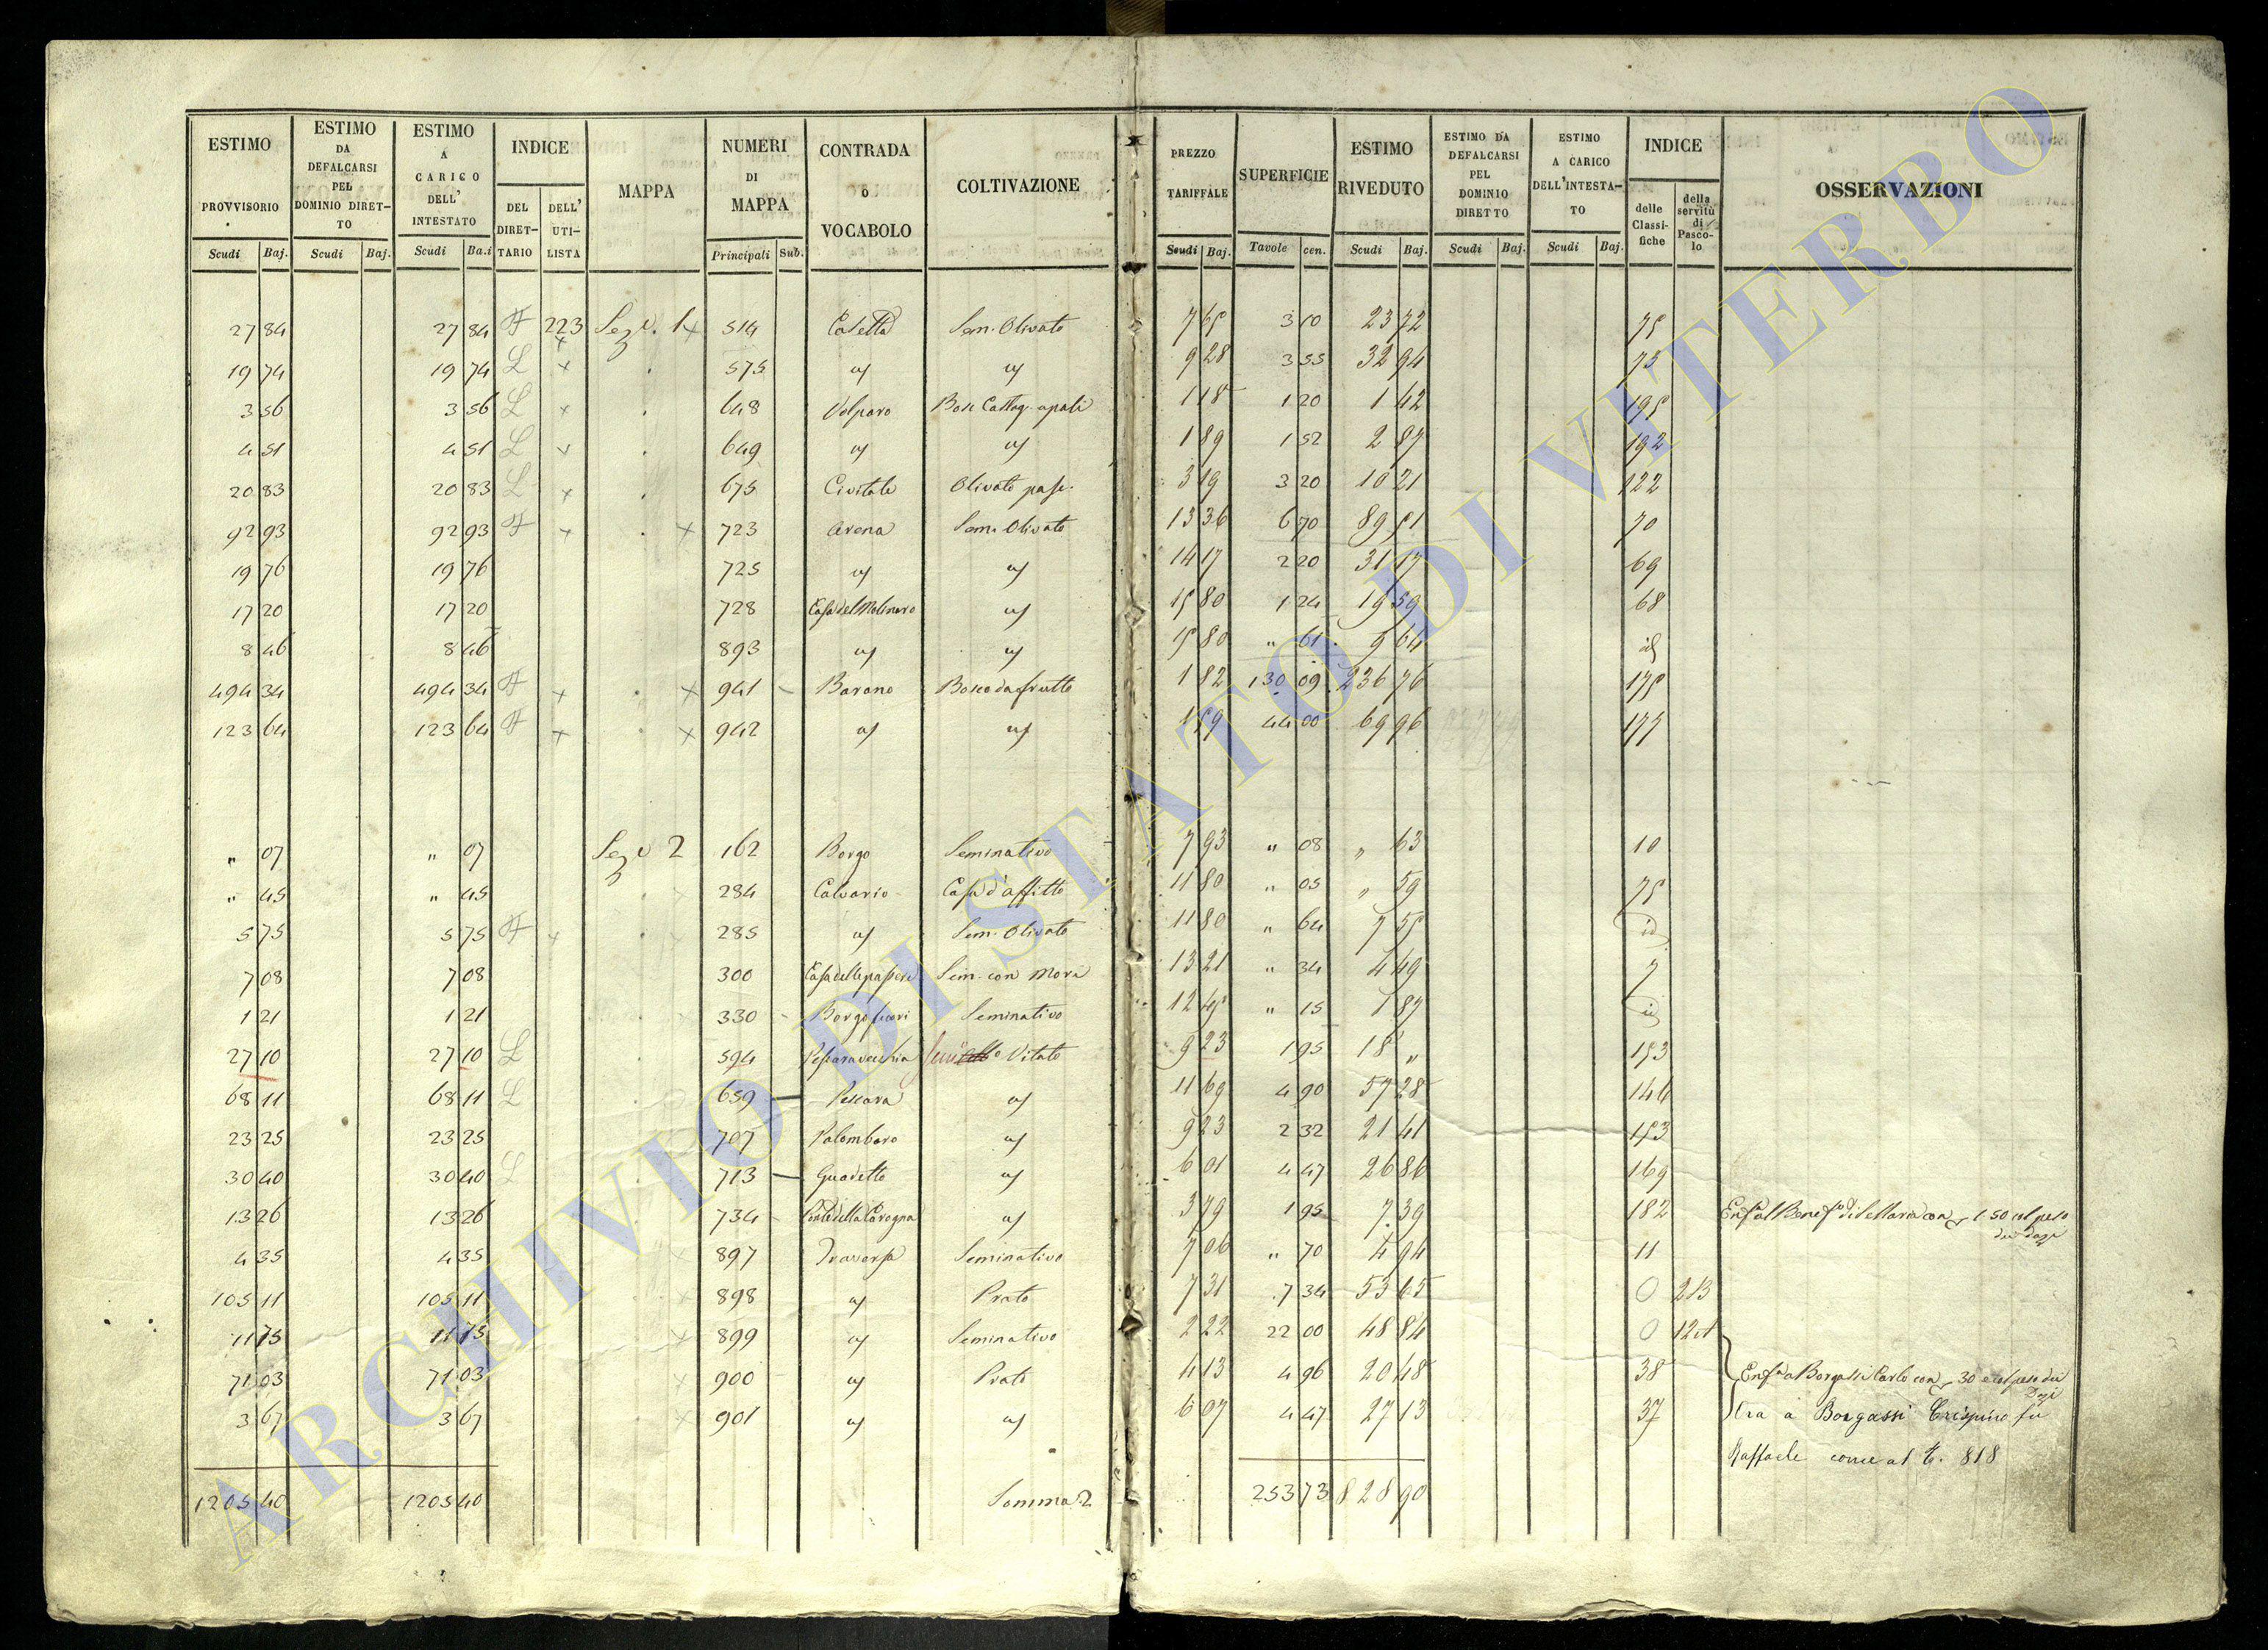 ESTIMO PROVVISORIO Scudi Baj. | ESTIMO DA DEFALCARSI PEL DOMINIO DIRET-TO Scudi Baj. | ESTIMO A CARICO DELL' INTESTATO Scudi Ba.i | INDICE DEL DIRET-TARIO DELL' UTI-LISTA | MAPPA | NUMERI DI MAPPA Principali Sub. | CONTRADA o VOCABOLO | COLTIVAZIONE | PREZZO TARIFFALE Scudi Baj. | SUPERFICIE Tavole cen. | ESTIMO RIVEDUTO Scudi Baj. | ESTIMO DA DEFALCARSI PEL DOMINIO DIRETTO Scudi Baj. | ESTIMO A CARICO DELL'INTESTA-TO Scudi Baj. | INDICE delle Classi-fiche della servitù di Pasco-lo | OSSERVAZIONI
27 84 27 84 223 Sez. 1 514 Casetta Sem. Olivato 7 65 3 10 23 72 75
19 74 19 74 L 575 id id 9 28 3 55 32 94 73
3 56 3 56 L 648 Volparo 1 18 1 20 1 42 195
4 51 4 51 L 649 id id 1 89 1 52 2 87 192
20 83 20 83 L 675 Civitale Olivato pasc. 3 19 3 20 10 21 122
92 93 92 93 723 Arena Sem. Olivato 13 36 6 70 89 51 70
19 76 19 76 725 id id 14 17 2 20 31 17 69
17 20 17 20 728 Casa del Molinaro id 15 80 1 24 19 59 68
8 46 8 46 893 id id 15 80 " 61 9 64 id
494 34 494 34 941 Barano Bosco da frutto 1 82 130 09 236 76 175
123 64 123 64 942 id id 1 59 44 00 69 96 177
" 07 " 07 Sez. 2 162 Borgo Seminativo 7 93 " 08 " 63 10
" 45 " 45 284 Calvario Casa d'affitto 11 80 " 05 " 59 75
5 75 5 75 285 id Sem. Olivato 11 80 " 64 7 55 id
7 08 7 08 300 Casa delle passere Sem. con Mori 13 21 " 34 4 49 7
1 21 1 21 330 Borgo fuori Seminativo 12 45 " 15 1 87 id
27 10 27 10 L 594 Pescara vecchia Vitato 9 23 1 95 18 " 153
68 11 68 11 L 659 Pescara id 11 69 4 90 57 28 146
23 25 23 25 707 Palombaro id 9 23 2 32 21 41 153
30 40 30 40 L 713 Guadetto id 6 01 4 47 26 86 169
13 26 13 26 734 Ponte della Carogna id 3 79 1 95 7 39 182 1 50 col peso
dei dazi
4 35 4 35 897 Traversa Seminativo 7 06 " 70 4 94 11
105 11 105 11 898 id Prato 7 31 7 34 53 65 0 2 B
11 75 11 75 899 id Seminativo 2 22 22 00 48 84 0 12 A
71 03 71 03 900 id Prato 4 13 4 96 20 48 38 Borgassi Carlo con 30 e col peso dei
Dazi
3 67 3 67 901 id id 6 07 4 47 27 13 37 Ora a Borgassi Crispino fu
Raffaele come al t. 818
1205 40 1205 40 Somma 2 253 73 828 90
ARCHIVIO DI STATO DI VITERBO